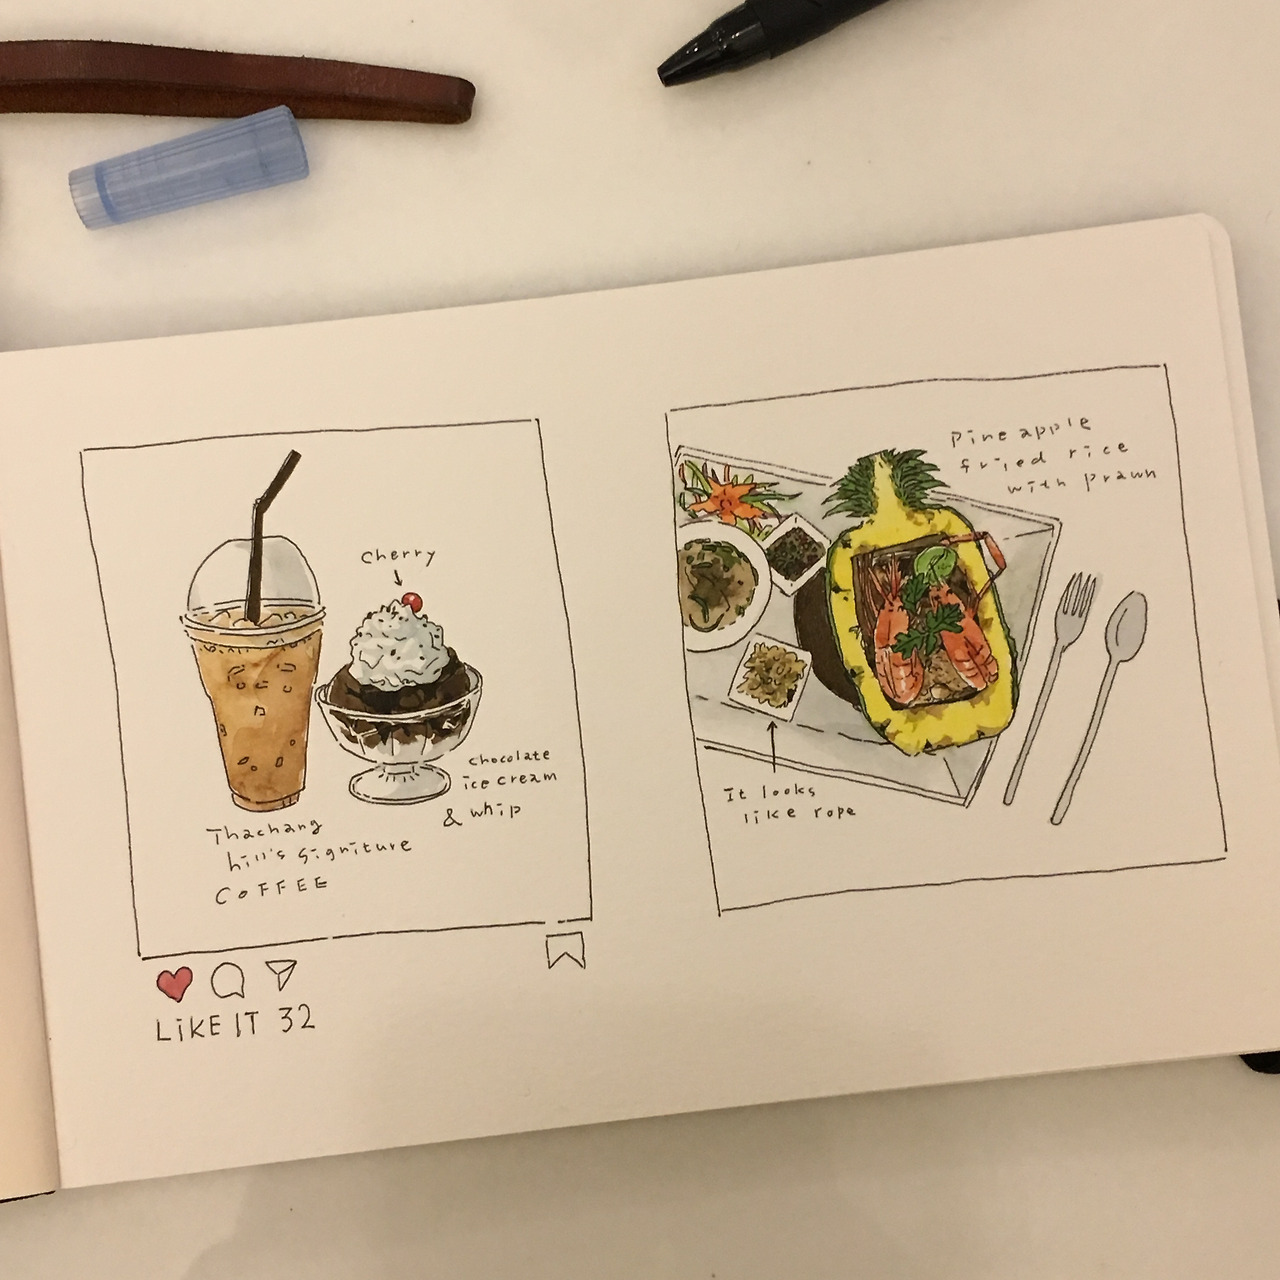 cherry
chocolate
ice cream
& whip
Thachang
hill's signiture
COFFEE
LiKE IT 32
Pineapple
fried rice
with prawn
It looks
like rope